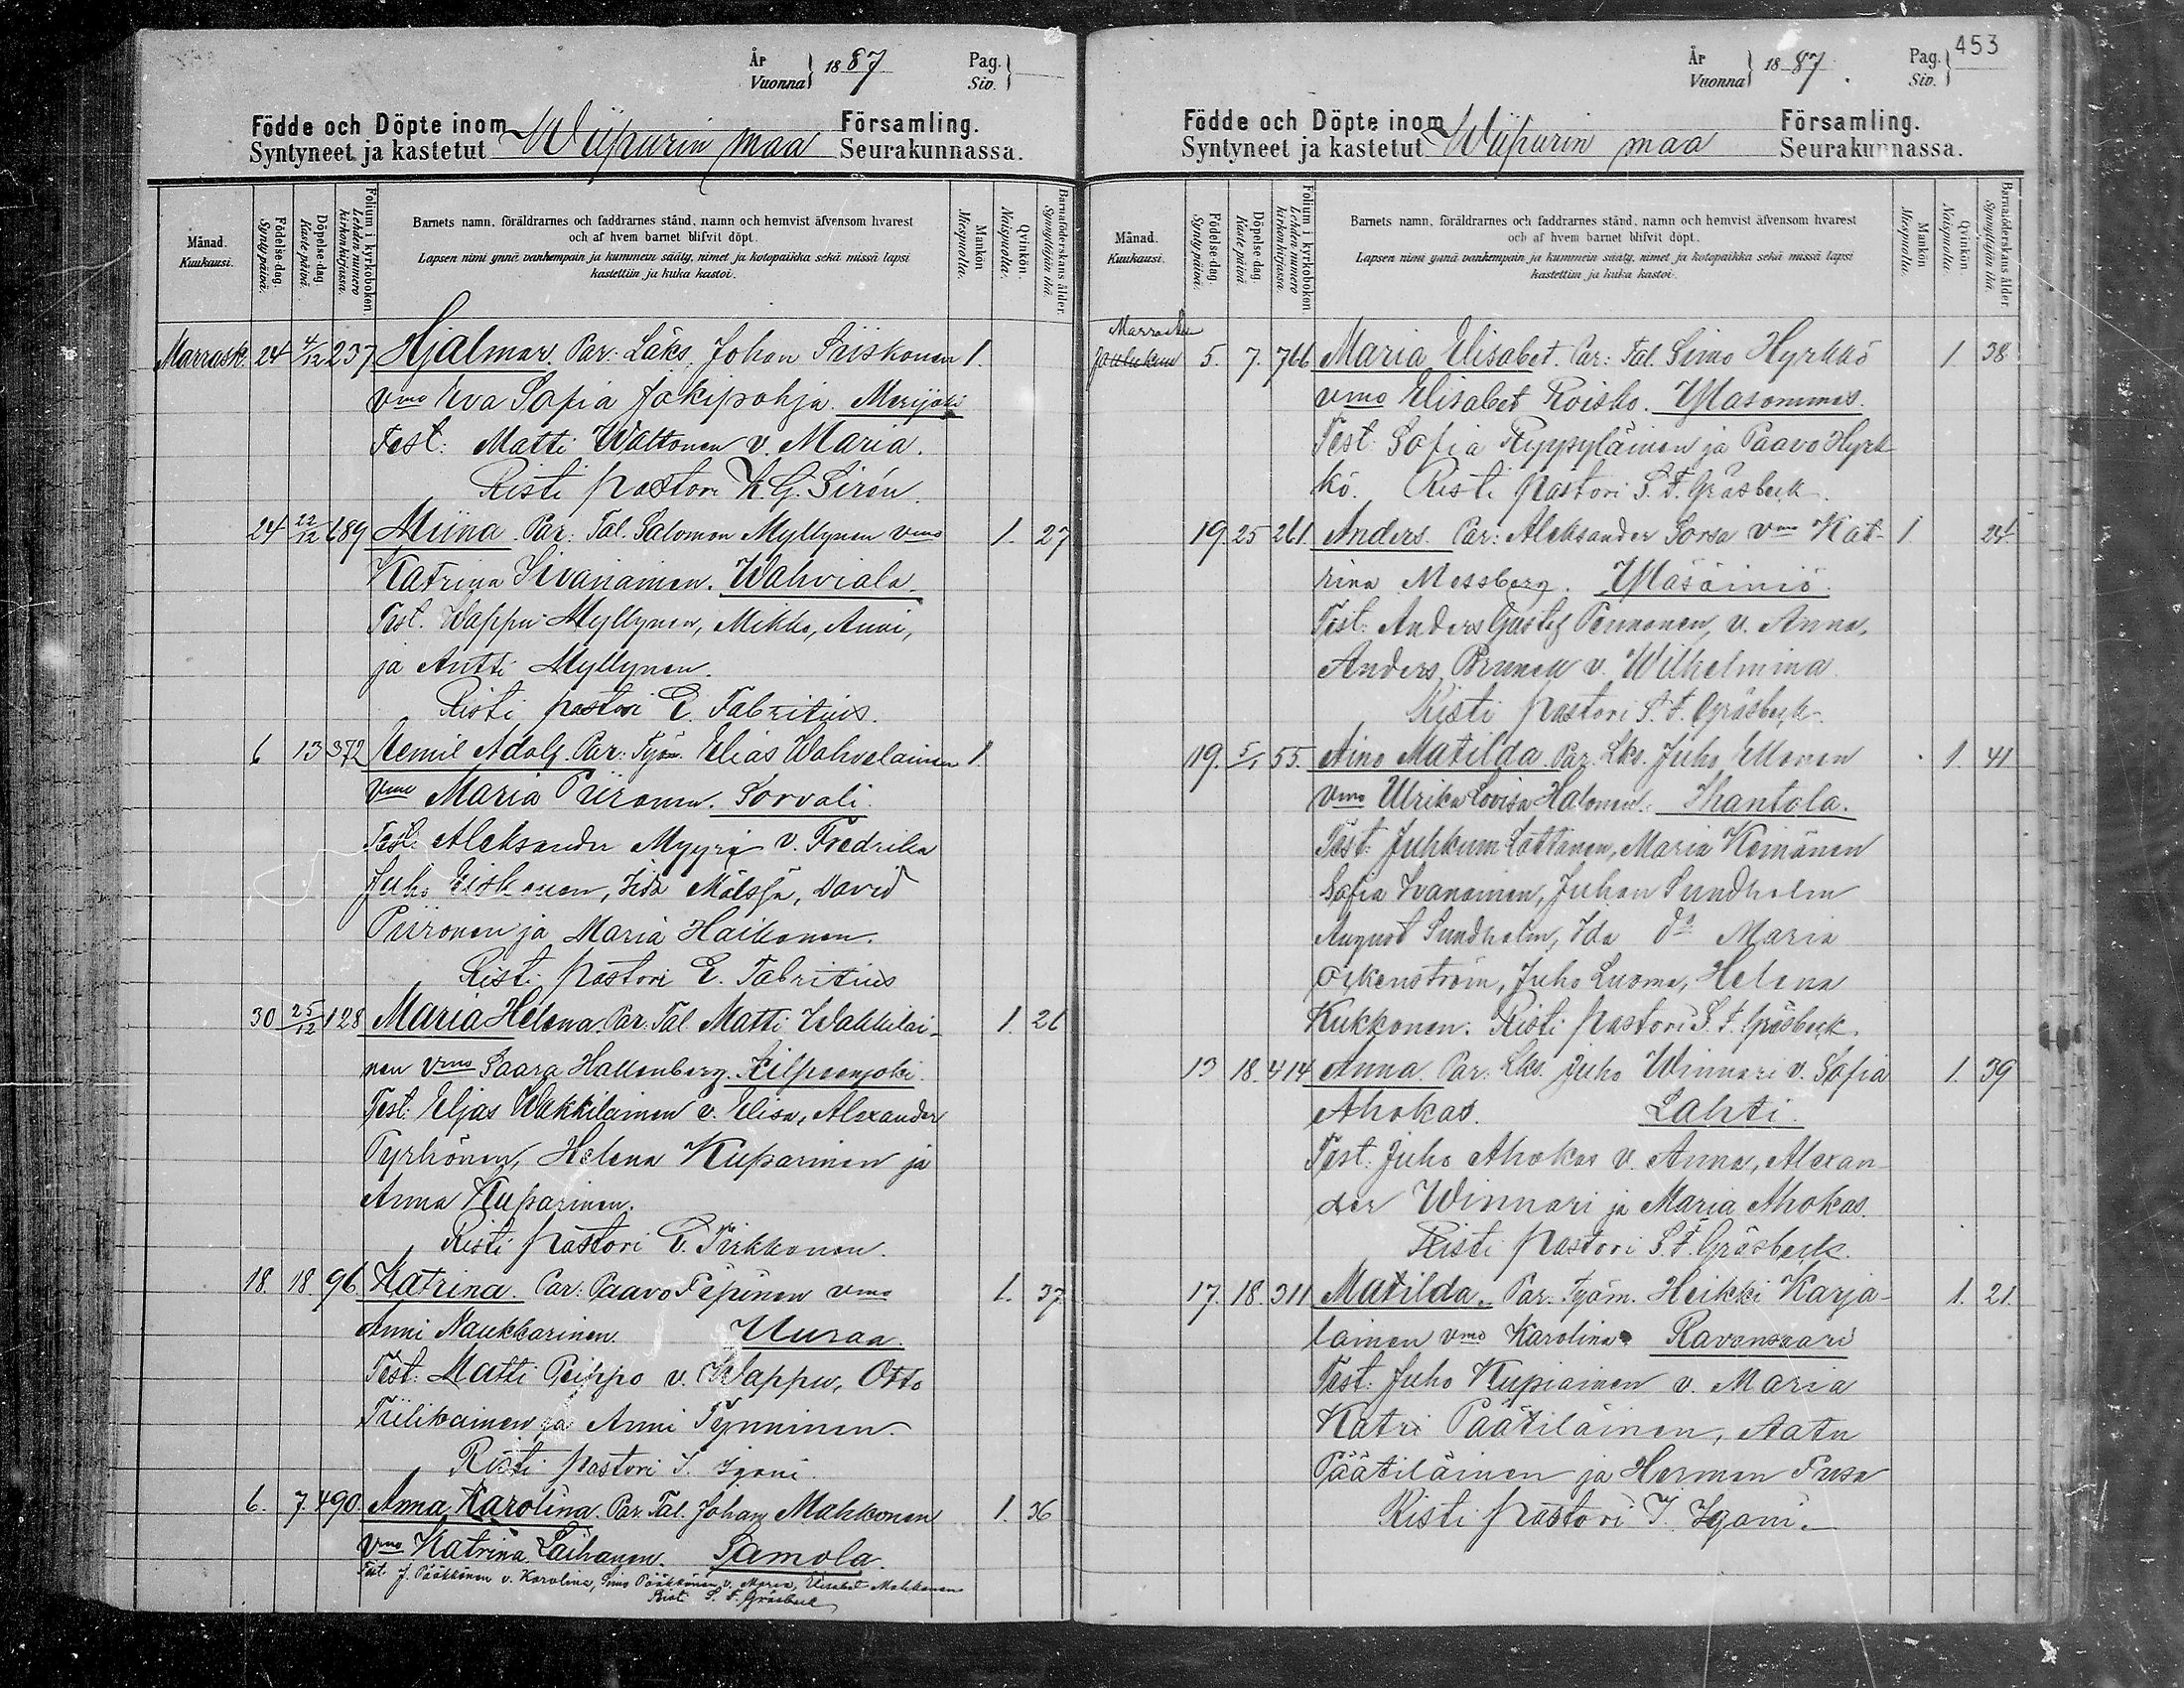 År
Vuonna } 1887
Pag.
Siv. }
Födde och Döpte inom
Syntyneet ja kastetut Wiipurin maa Församling.
Seurakunnassa.
Månad.
Kuukausi.
Födelse-dag.
Syntypäivä.
Döpelse-dag.
Kastepäivä.
Folium i kyrkoboken
Lehden numero
kirkonkirjassa.
Barnets namn, föräldrarnes och faddrarnes stånd, namn och hemvist äfvensom hvarest
och af hvem barnet blifvit döpt.
Lapsen nimi ynnä vanhempain ja kummein sääty, nimet ja kotopaikka sekä missä lapsi
kastettiin ja kuka kastoi.
Mankön
Miespuolia.
Qvinkön.
Naispuolia.
Barnaföderskans ålder.
Synnyttäjän ikä.
Marrask. 24 4/12 237 Hjalmar. Par: Läks. Johan Säiskonen 1.
vmo Eva Sofia Jokipohja. Merijoki
Test: Matti Wattonen v. Maria.
Risti pastori K. G. Sirén.
24 22/12 689 Miina. Par: Tal. Salomon Myllynen vmo 1. 27
Katrina Sivanainen. Wahviala.
Test. Wappu Myllynen, Mikko, Anni,
ja Antti Myllynen.
Risti pastori E. Fabritius.
6 13 372 Eemil Adolf. Par: Työm. Elias Wahvelainen 1.
vmo Maria Piironen. Sorvali.
Test: Aleksander Myyrä v. Fredrika
Juho Eiskonen, Iida Mälsjä, David
Piironen ja Maria Haikonen.
Risti pastori E. Fabritius
30 25/12 128 Maria Helena. Par: Tal Matti Wakkilai- 1. 26
nen vmo Saara Hallenberg. Kilpeenjoki.
Test: Eljas Wakkilainen v. Elisa, Alexander
Tyrhönen, Helena Kuparinen ja
Anna Kuparinen.
Risti pastori E. Pirkkonen.
18. 18. 96 Katrina. Par: Paavo Päpinen vmo 1. 37
Anni Naukkarinen. Uuraa.
Test: Matti Peippo v. Wappu, Otto
Tiilikainen ja Anni Tynninen.
Risti pastori I. Igoni.
6. 7. 490. Anna Karolina. Par. Tal. Johan Mahkonen 1. 36
vmo Katrina Laihanen. Samola.
Test J. Pääkkönen v. Karolina, Simo Pääkkönen v. Maria, Elisabet Mahkonen
Risti S. F. Gråsbeck
453
År
Vuonna } 1887.
Pag.
Siv. }
Födde och Döpte inom
Syntyneet ja kastetut Wiipurin maa Församling.
Seurakunnassa.
Månad.
Kuukausi.
Födelse-dag.
Syntypäivä.
Döpelse-dag.
Kastepäivä.
Folium i kyrkoboken
Lehden numero
kirkonkirjassa.
Barnets namn, föräldrarnes och faddrarnes stånd, namn och hemvist äfvensom hvarest
och af hvem barnet blifvit döpt.
Lapsen nimi ynnä vanhempain ja kummein sääty, nimet ja kotopaikka sekä missä lapsi
kastettiin ja kuka kastoi.
Mankön
Miespuolia.
Qvinkön.
Naispuolia.
Barnaföderskans ålder.
Synnyttäjän ikä.
Marrasku
Joulukuu 5. 7. 766 Maria Elisabet. Par: Tal. Simo Hyrkkö 1. 38
vmo Elisabet Roisko. Yläsommes.
Test: Sofia Ryppyläinen ja Paavo Hyrk
kö. Risti pastori S. F. Gråsbeck.
19. 25 261 Anders. Par: Aleksander Sorsa vmo Kat- 1 24.
rina Messberg. Yläsäiniö.
Test: Anders Gustaf Pennanen, v. Anna,
Anders Brunou v. Wilhelmina.
Risti pastori S. F. Gråsbeck.
19. 5/1 55. Aino Matilda. Par. Lks. Juho Ellonen 1. 41
vmo Ulrika Lovisa Halonen. Ihantola.
Test: Juhkum Lattanen, Maria Keinänen
Sofia Ivanainen, Juhan Sundholm
August Sundholm, Ida do Maria
Öskenström, Juho Luoma, Helena
Kukkonen. Risti pastori S. F. Gråsbeck.
13 18. 414 Anna. Par: Lks. Juho Winnari v. Sofia 1. 39
Ahokas. Lahti.
Test: Juho Ahokas v. Anna, Alexan
der Winnari ja Maria Ahokas.
Risti pastori S. F. Gråsbeck.
17. 18. 311 Matilda. Par. Työm. Heikki Karja- 1. 21.
lainen vmo Karolina Ravansaari
Test: Juho Kupiainen v. Maria
Katri Päätiläinen, Aatu
Päätiläinen ja Herman Fusa
Risti pastori I. Igoni.